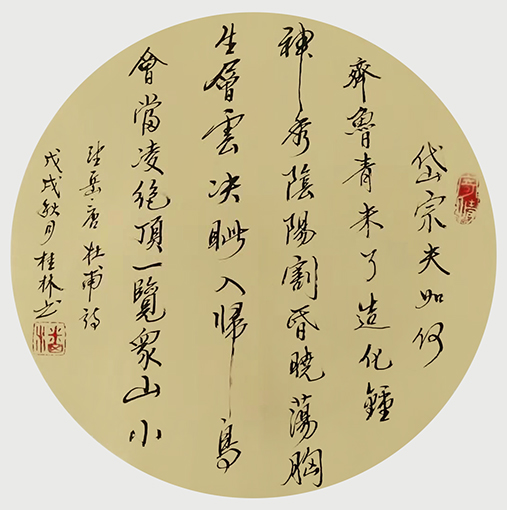 岱宗夫如何
齊魯青未了造化鍾
神秀陰陽割昏曉蕩胸
生層雲决眦入歸鳥
會當凌絕頂一覽衆山小
望岳唐杜甫詩
戊戌秋月桂林书